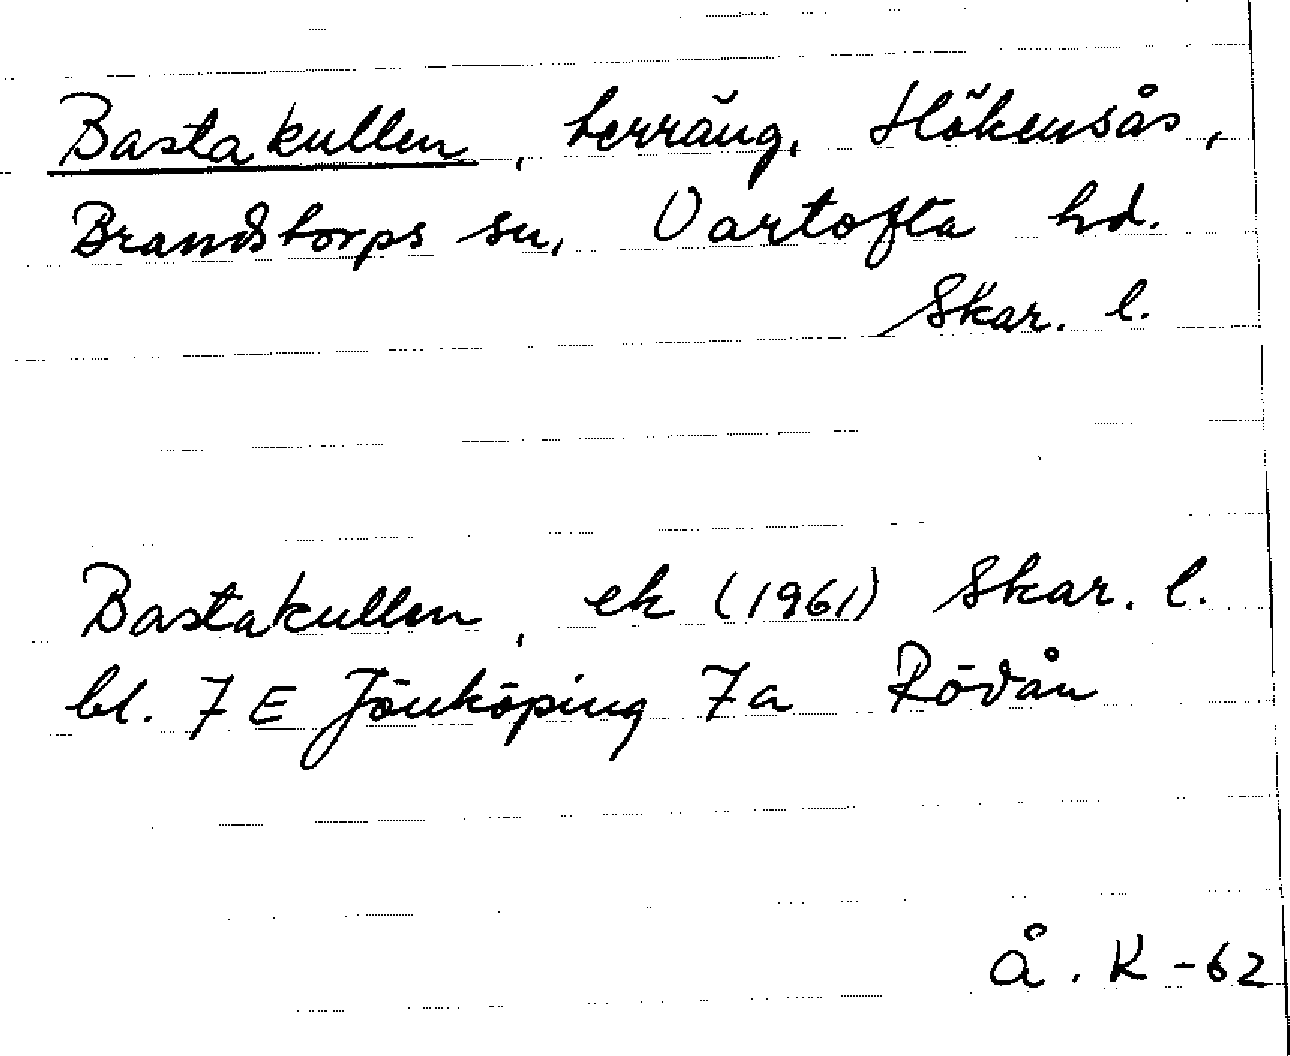 Bastakullen, terräng, Hökensås,
Brandstorps sn, Vartofta hd.
Skar. l.
Bastakullen, ek (1961) Skar. l.
bl. 7 E Jönköping 7a Rödån
Å. K -62